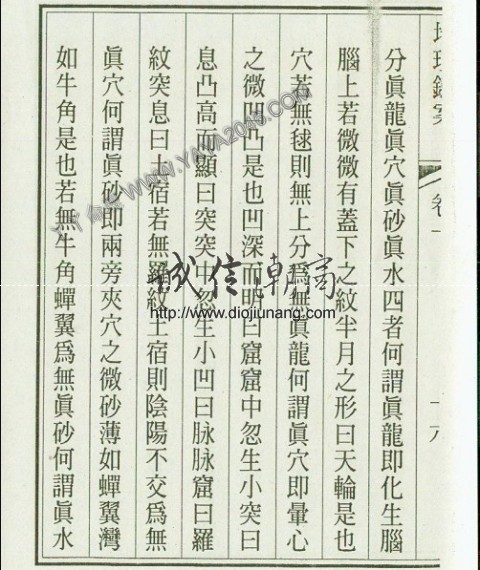 卷
分眞龍眞穴眞砂眞水四者何謂眞龍即化生腦
腦上若微微有蓋下之紋半月之形曰天輪是也
穴若無毬則無上分爲無眞龍何謂眞穴即暈心
之微凹凸是也凹深而明曰窟窟中忽生小突曰
息凸高而顯曰突突中忽生小凹曰脉脉窟曰羅
紋突息曰土宿若無羅紋土宿則陰陽不交爲無
眞穴何謂眞砂即兩旁夾穴之微砂薄如蟬翼灣
如牛角是也若無牛角蟬翼爲無眞砂何謂眞水
WWW.YAYA2015.COM
誠信
http://www.diojiunang.com